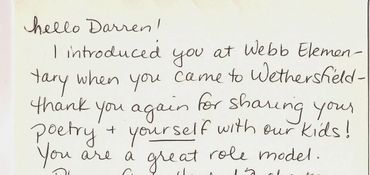 hello Darren!
I introduced you at Webb Elemen-
tary when you came to Wethersfield-
thank you again for sharing your
poetry + yourself with our kids!
You are a great role model.